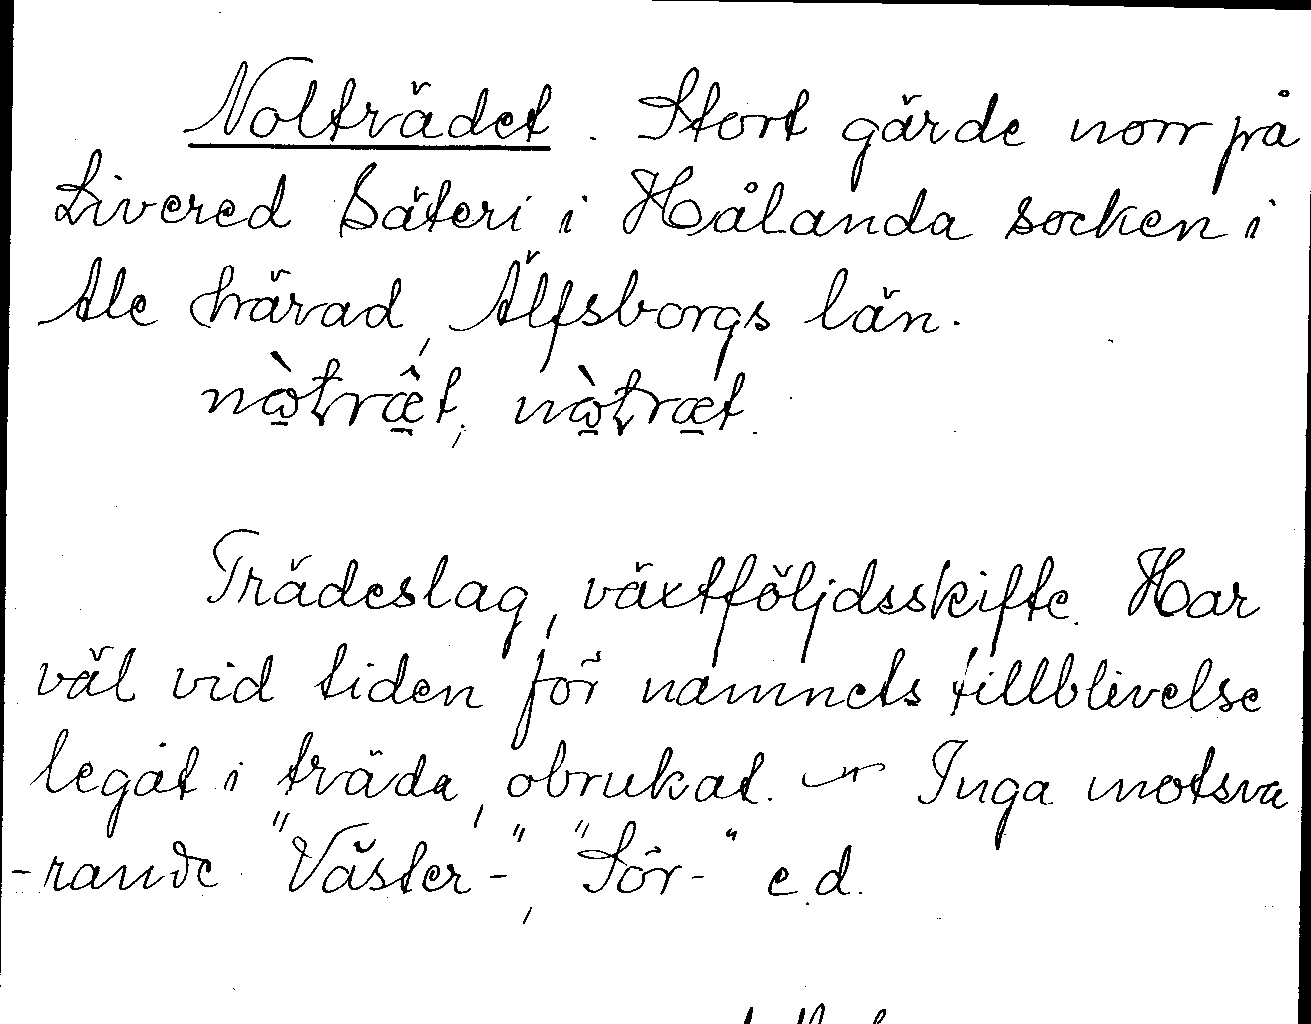 Nolträdet. Stort gärde norr på
Livered Säteri i Hålanda socken i
Ale härad, Älfsborgs län.
nòträ̂t, nòträt.
Trädeslag, växtföljdsskifte. Har
väl vid tiden för namnets tillblivelse
legat i träda, obrukat. — Inga motsva
-rande "Väster-", "Sör-" e.d.